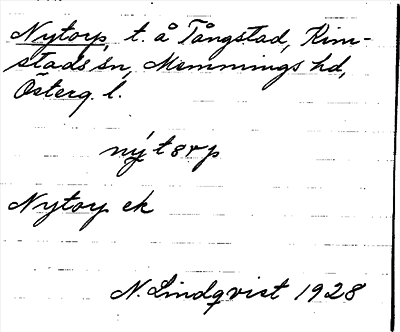 Nytorp, t. å Tångstad, Kim-
stads sn, Memmings hd,
Österg. l.
nýtorp
Nytorp ek
N. Lindqvist 1928